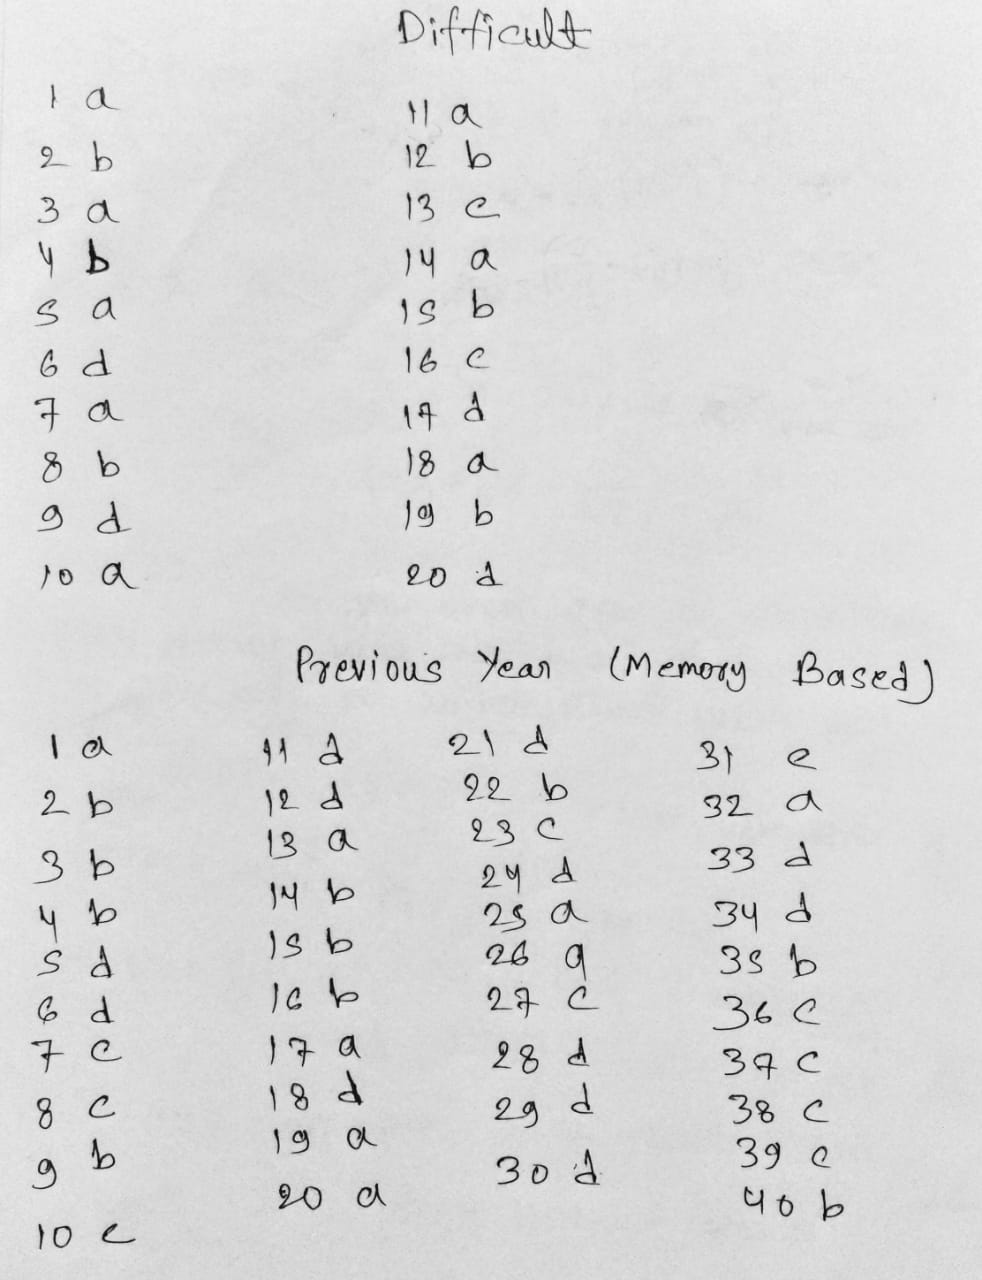 Difficult
1 a
2 b
3 a
4 b
5 a
6 d
7 a
8 b
9 d
10 a
11 a
12 b
13 c
14 a
15 b
16 c
17 d
18 a
19 b
20 d
Previous Year (Memory Based)
1 a
2 b
3 b
4 b
5 d
6 d
7 c
8 c
9 b
10 e
11 d
12 d
13 a
14 b
15 b
16 b
17 a
18 d
19 a
20 a
21 d
22 b
23 c
24 d
25 a
26 a
27 c
28 d
29 d
30 d
31 e
32 a
33 d
34 d
35 b
36 c
37 c
38 c
39 e
40 b